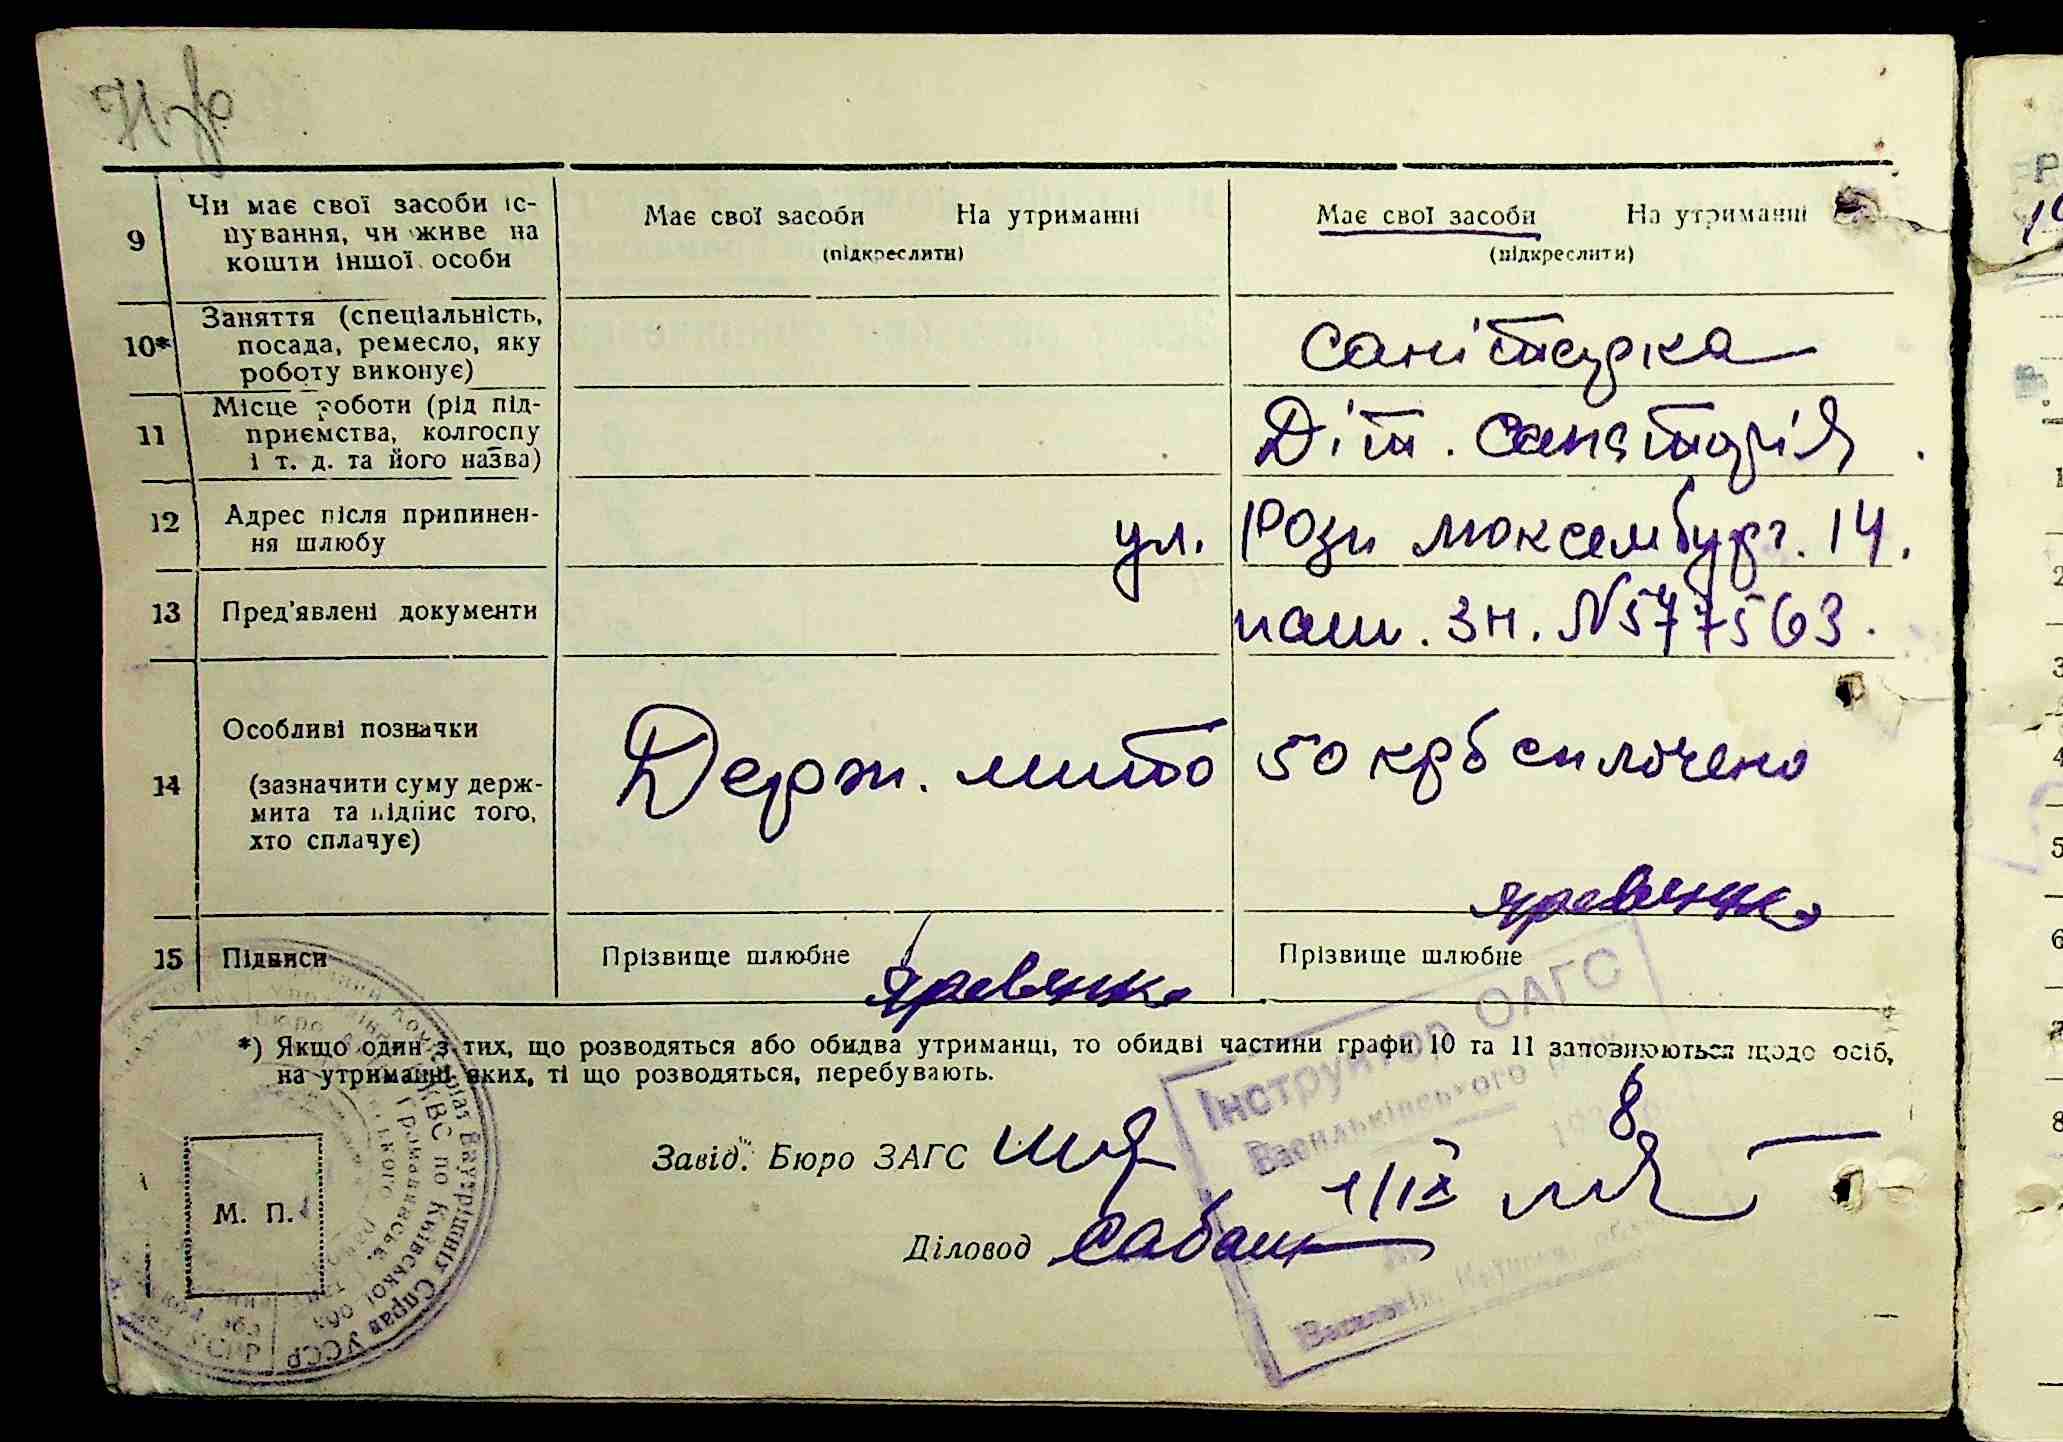 9
Чи має свої засоби іс-
нування, чи живе на
кошти іншої особи
Має свої засоби На утриманні
(підкреслити)
Має свої засоби На утриманні
(підкреслити)
10*
Заняття (спеціальність,
посада, ремесло, яку
роботу виконує)
санітарка
11
Місце роботи (рід під-
приємства, колгоспу
і т. д. та його назва)
Діт. санаторія
12
Адрес після припинен-
ня шлюбу
ул. Рози люксембург. 14.
13
Пред'явлені документи
паш. Зн. N577563.
14
Особливі позначки
(зазначити суму держ-
мита та підпис того,
хто сплачує)
Держ. мито 50 крб сплочено
15
Підписи
Прізвище шлюбне
Прізвище шлюбне
*) Якщо один з тих, що розводяться або обидва утриманці, то обидві частини графи 10 та 11 заповнюються щодо осіб,
на утриманні яких, ті що розводяться, перебувають.
Інструктор ОАГС
Васильківського р-ну
Завід. Бюро ЗАГС
8
1/IX
М. П.
Діловод